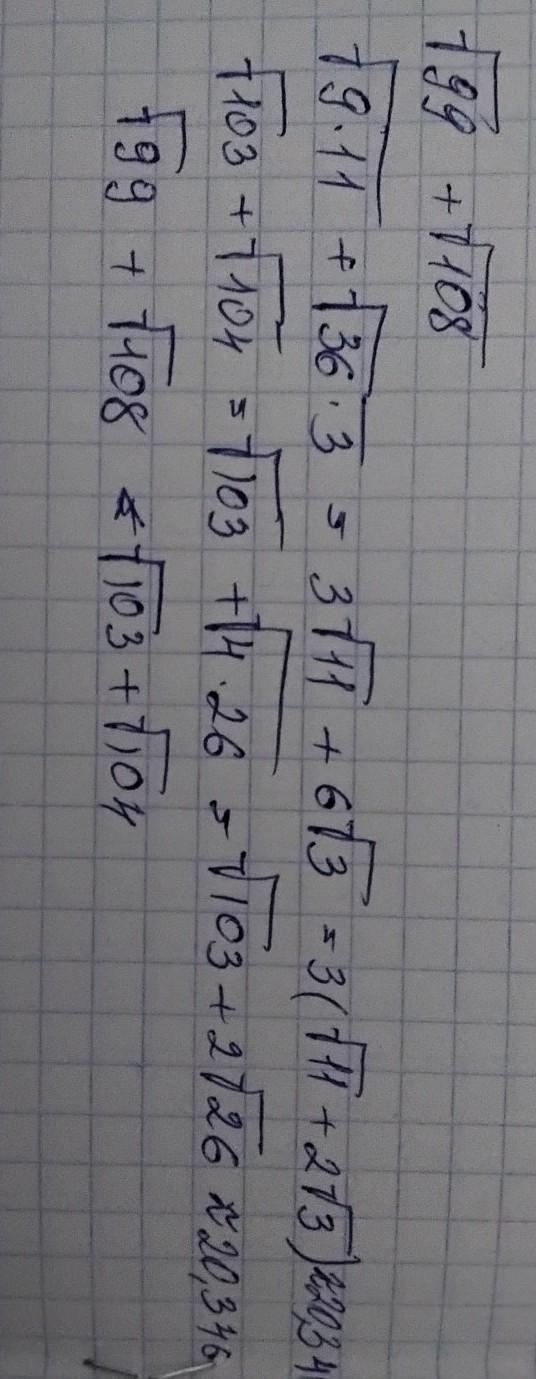 √99 + √108
√9·11 + √36·3 = 3√11 + 6√3 = 3(√11 + 2√3) ≈ 20,34
√103 + √104 = √103 + √4·26 = √103 + 2√26 ≈ 20,346
√99 + √108 < √103 + √104